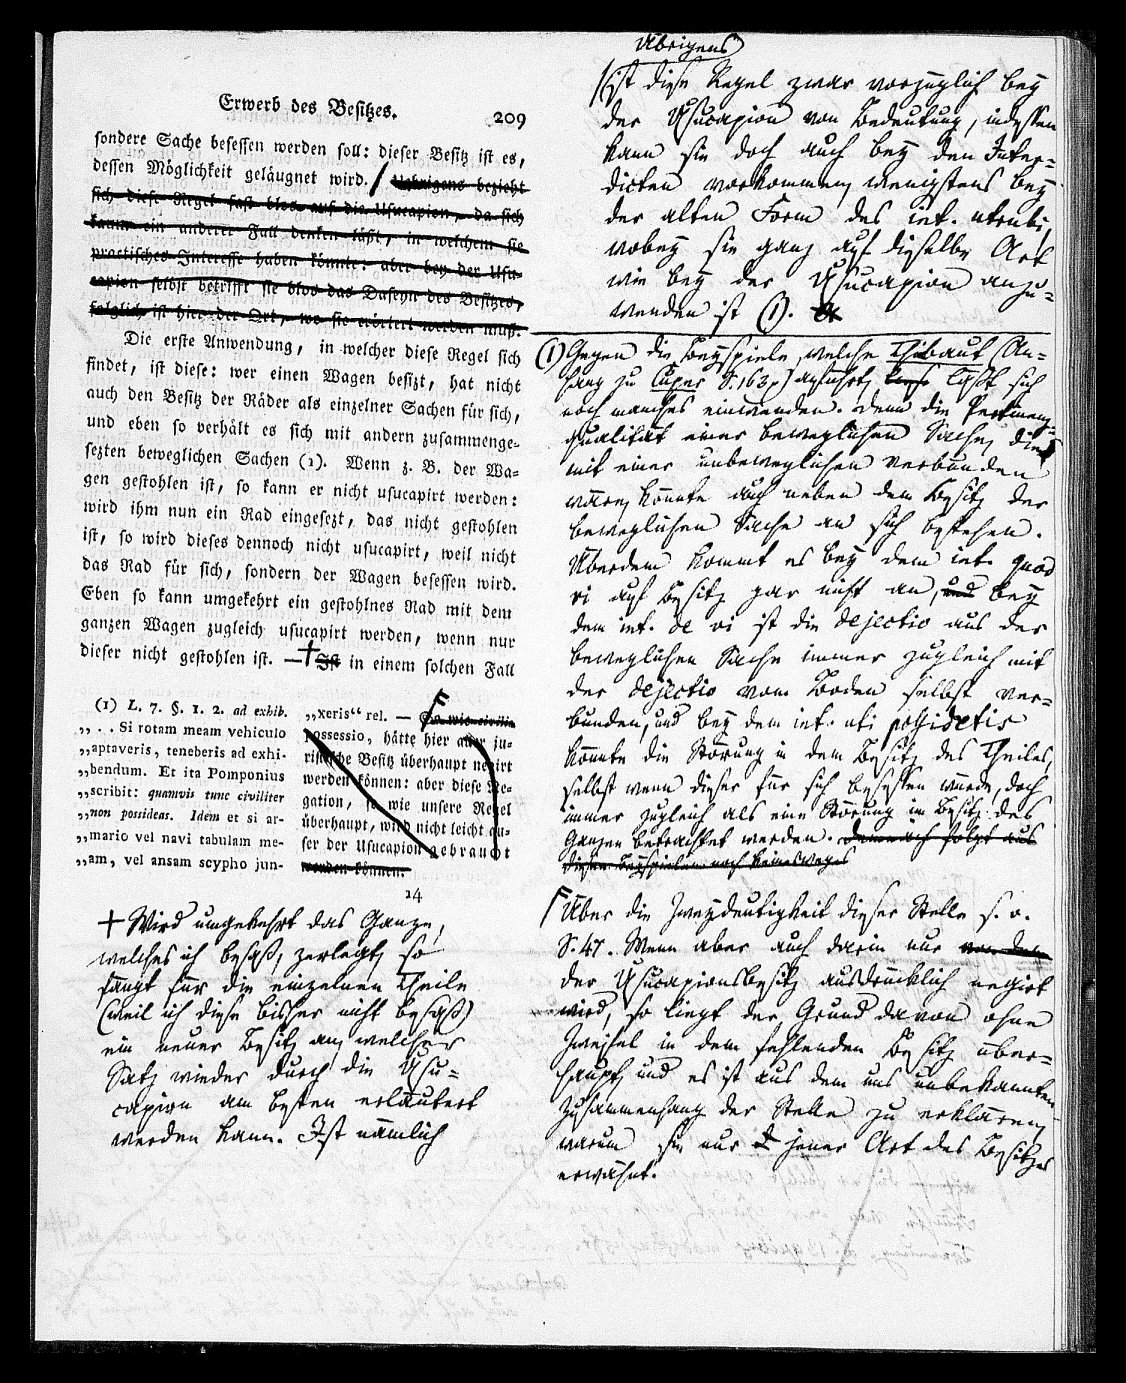 Erwerb des Besitzes. 209
sondere Sache besessen werden soll: dieser Besitz ist es,
dessen Möglichkeit geläugnet wird. Uebrigens bezieht
sich diese Regel fast blos auf die Usucapion, da sich
kaum ein anderer Fall denken läßt, in welchem sie
practisches Interesse haben könnte: aber bey der Usu-
capion selbst betrifft sie blos das Daseyn des Besitzes,
folglich ist hier der Ort, wo sie erörtert werden muß.
Die erste Anwendung, in welcher diese Regel sich
findet, ist diese: wer einen Wagen besizt, hat nicht
auch den Besitz der Räder als einzelner Sachen für sich,
und eben so verhält es sich mit andern zusammenge-
sezten beweglichen Sachen (1). Wenn z. B. der Wa-
gen gestohlen ist, so kann er nicht usucapirt werden:
wird ihm nun ein Rad eingesezt, das nicht gestohlen
ist, so wird dieses dennoch nicht usucapirt, weil nicht
das Rad für sich, sondern der Wagen besessen wird.
Eben so kann umgekehrt ein gestohlnes Rad mit dem
ganzen Wagen zugleich usucapirt werden, wenn nur
dieser nicht gestohlen ist. — Ist in einem solchen Fall
(1) L. 7. §. 1. 2. ad exhib.
„ . . Si rotam meam vehiculo
„aptaveris, teneberis ad exhi-
„bendum. Et ita Pomponius
„scribit: quamvis tunc civiliter
„non possideas. Idem et si ar-
„mario vel navi tabulam me-
„am, vel ansam scypho jun-
„xeris“ rel. — So wie civilis
possessio, hätte hier aller ju-
ristische Besitz überhaupt negirt
werden können: aber diese Ne-
gation, so wie unsere Regel
überhaupt, wird nicht leicht au-
ser der Usucapion gebraucht
werden können.
14
+ Wird umgekehrt das Ganze,
welches ich besaß, zerlegt, so
fängt für die einzelnen Theile
(weil ich diese bisher nicht besaß)
ein neuer Besitz an, welcher
Satz wieder durch die Usu-
capion am besten erläutert
werden kann. Ist nämlich
Übrigens
ist diese Regel zwar vorzüglich bey
der Usucapion von Bedeutung, indessen
kann sie doch auch bey den Inter-
dicten vorkommen, wenigstens bey
der alten Form des int. utrubi,
wobey sie ganz auf dieselbe Art
wie bey der Usucapion anzu-
wenden ist (1).
(1) Gegen die Beyspiele, welche Thibaut (An-
hang zu Cuper S. 163.) anführt, läßt sich
noch manches einwenden. Denn die Pertinenz-
qualität einer beweglichen Sache, die
mit einer unbeweglichen verbunden
wäre, könnte auch neben dem Besitz der
beweglichen Sache an sich bestehen.
Überdem kommt es bey dem int. quod
vi auf Besitz gar nicht an, und bey
dem int. de vi ist die dejectio aus der
beweglichen Sache immer zugleich mit
der dejectio vom Boden selbst ver-
bunden, und bey dem int. uti possidetis
könnte die Störung in dem Besitz des Theiles,
selbst wenn dieser für sich besessen würde, doch
immer zugleich als eine Störung im Besitz des
Ganzen betrachtet werden. Demnach folgt aus
diesen Beyspielen noch keineswegs
Über die Zweydeutigkeit dieser Stelle s. o.
S. 47. Wenn aber auch darin nur von dem
der Usucapionsbesitz ausdrücklich negirt
wird, so liegt der Grund davon ohne
Zweifel in dem fehlenden Besitz über-
haupt, und es ist aus dem uns unbekannten
Zusammenhang der Stelle zu erklären,
warum sie nur jener Art des Besitzes
erwähnt.